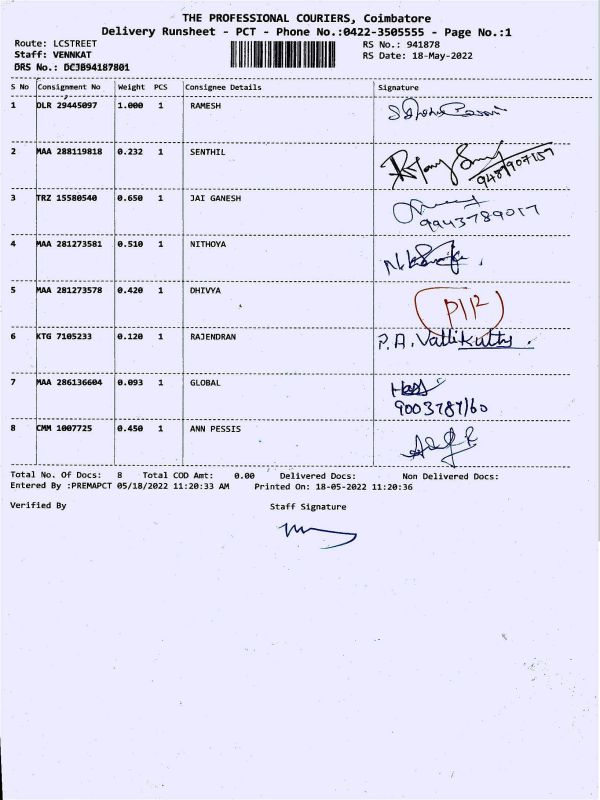 THE PROFESSIONAL COURIERS, Coimbatore
Delivery Runsheet - PCT - Phone No.:0422-3505555 - Page No.:1
Route: LCSTREET
RS No.: 941878
Staff: VENNKAT
RS Date: 18-May-2022
DRS No.: DCJB94187801
S No Consignment No Weight PCS Consignee Details Signature
1 DLR 29445097 1.000 1 RAMESH
2 MAA 288119818 0.232 1 SENTHIL
3 TRZ 15580540 0.650 1 JAI GANESH
9943789017
4 MAA 281273581 0.510 1 NITHOYA
5 MAA 281273578 0.420 1 DHIVYA
6 KTG 7105233 0.120 1 RAJENDRAN P.A. Vallikutty.
7 MAA 286136604 0.093 1 GLOBAL
8 CMM 1007725 0.450 1 ANN PESSIS
Total No. Of Docs: 8 Total COD Amt: 0.00 Delivered Docs: Non Delivered Docs:
Entered By :PREMAPCT 05/18/2022 11:20:33 AM Printed On: 18-05-2022 11:20:36
Verified By Staff Signature